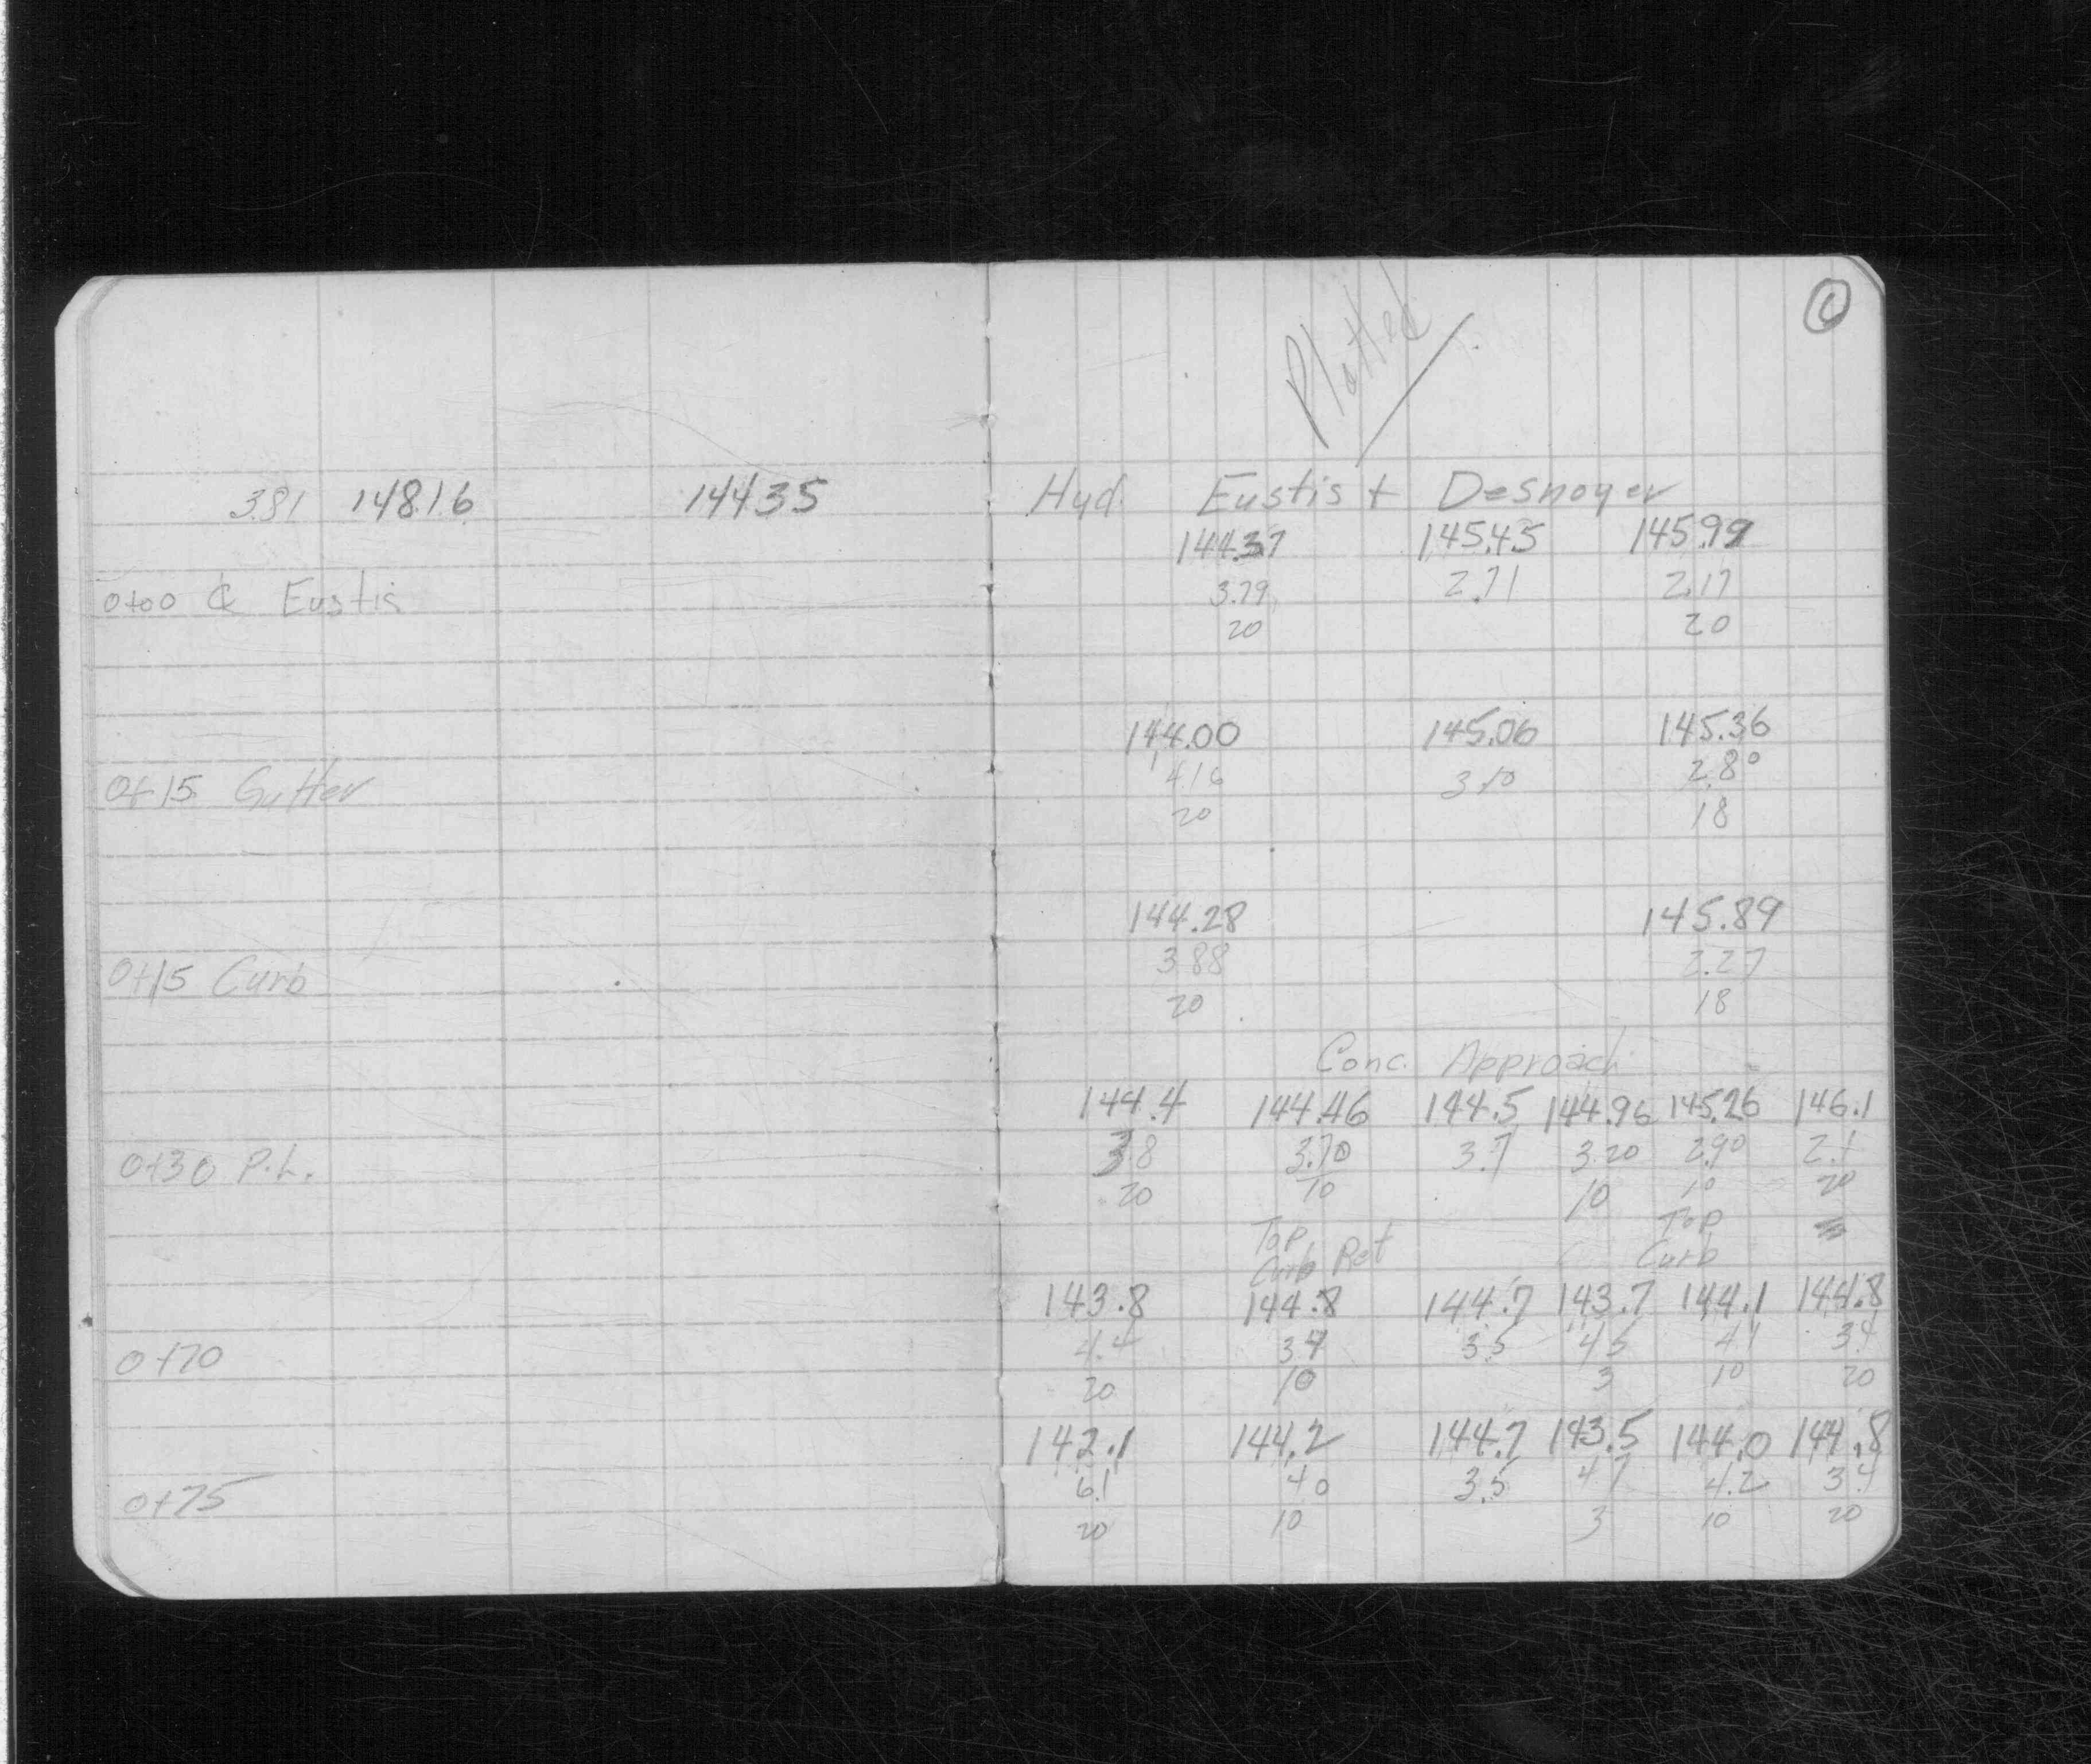 ①
Plotted
3.81 148.16 144.35 Hyd. Eustis + Desnoyer
144.37 145.45 145.99
0+00 ℄ Eustis 3.79 2.71 2.17
20 20
144.00 145.06 145.36
0+15 Gutter 4.16 3.10 2.80
20 18
144.28 145.89
0+15 Curb 3.88 2.27
20 18
Conc. Approach
144.4 144.46 144.5 144.96 145.26 146.1
0+30 P.L. 3.8 3.70 3.7 3.20 2.90 2.1
20 10 10 10 20
Top Top
Curb Ret Curb
143.8 144.8 144.7 143.7 144.1 144.8
0+70 4.4 3.4 3.5 4.5 4.1 3.4
20 10 3 10 20
142.1 144.2 144.7 143.5 144.0 144.8
0+75 6.1 4.0 3.5 4.7 4.2 3.4
20 10 3 10 20